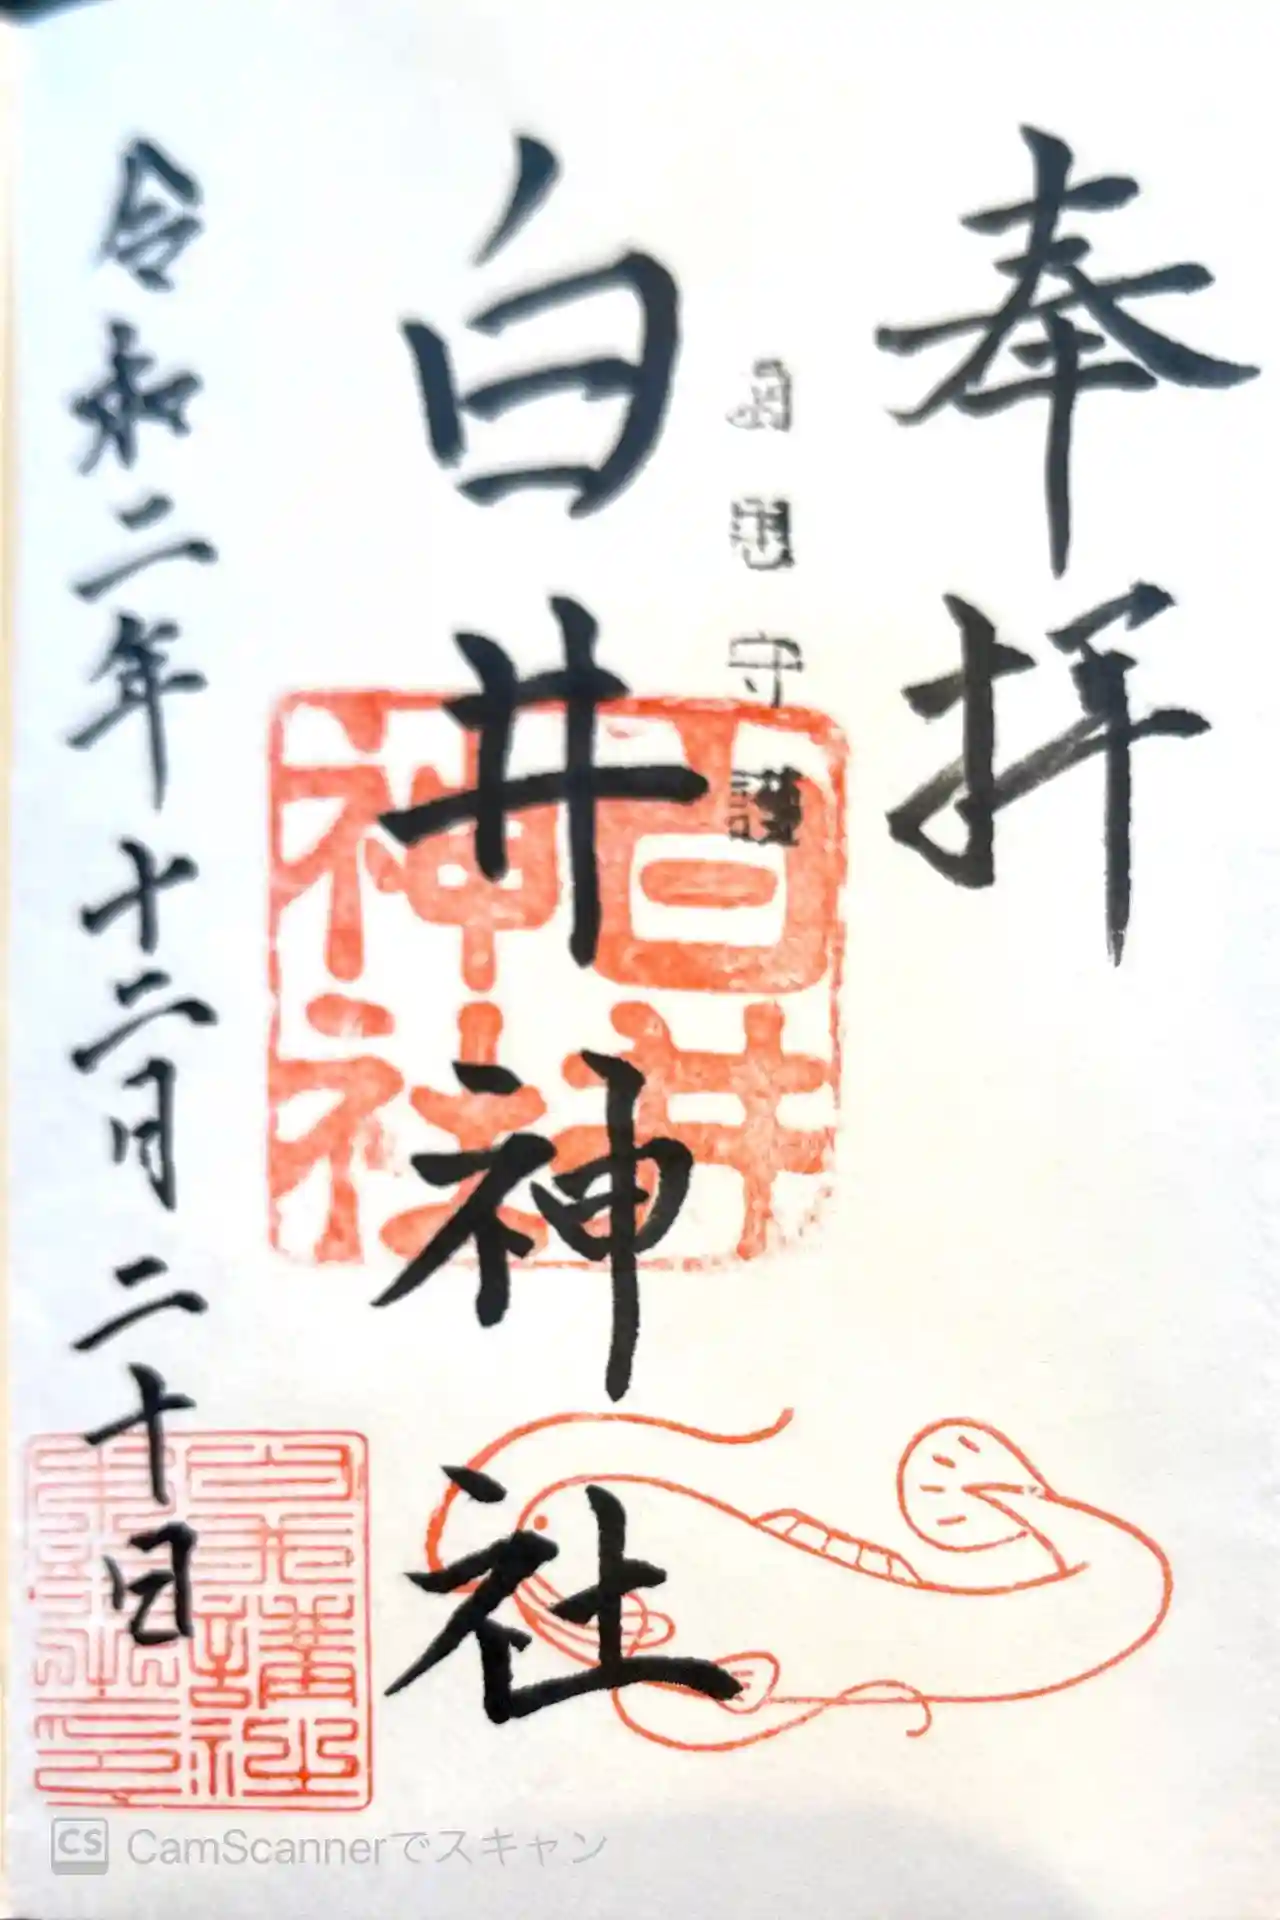 奉拝
守護
白井神社
令和二年十二月二十日
白井
神社
CS CamScannerでスキャン